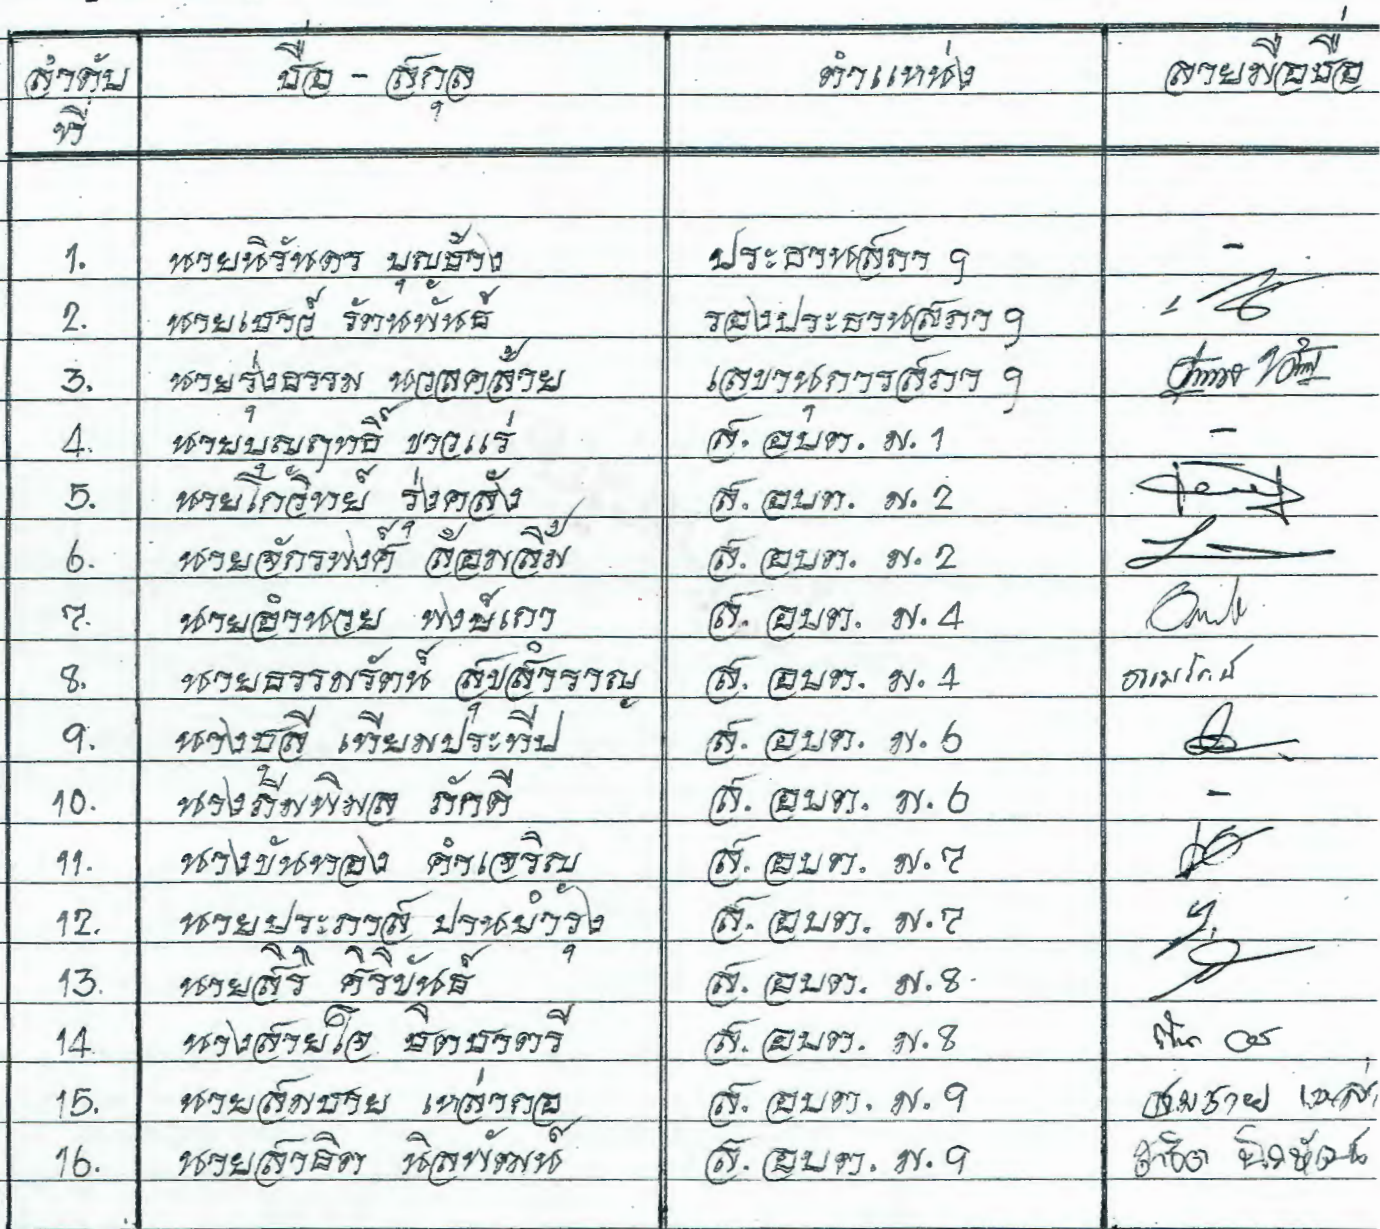 ลำดับ ชื่อ - สกุล ตำแหน่ง ลายมือชื่อ
ที่
1. นายนิรันดร บุญช้าง ประธานสภา ฯ -
2. นายเชาว์ รัตนพันธ์ รองประธานสภา ฯ
3. นายรุ่งธรรม นวลคล้าย เลขานุการสภา ฯ
4. นายบุญฤทธิ์ ขาวแร่ ส. อบต. ม. 1 -
5. นายโกวิทย์ รุ่งคลัง ส. อบต. ม. 2
6. นายจักรพงศ์ ล้อมลิ้ม ส. อบต. ม. 2
7. นายอำนวย พงษ์เกา ส. อบต. ม. 4
8. นายธรรมรัตน์ สุขสำราญ ส. อบต. ม. 4 ธรรมรัตน์
9. นางชุลี เทียมประทีป ส. อบต. ม. 6
10. นางภิมพิมล ภักดี ส. อบต. ม. 6 -
11. นางขันทอง คำเจริญ ส. อบต. ม. 7
12. นายประภาส ปานบำรุง ส. อบต. ม. 7
13. นายสิริ คิริขันธ์ ส. อบต. ม. 8
14. นางสายใจ ชิตชาตรี ส. อบต. ม. 8
15. นายสมชาย เหล่ากอ ส. อบต. ม. 9 สมชาย
16. นายสาธิต นิลพัฒน์ ส. อบต. ม. 9 สาธิต นิลพัฒน์